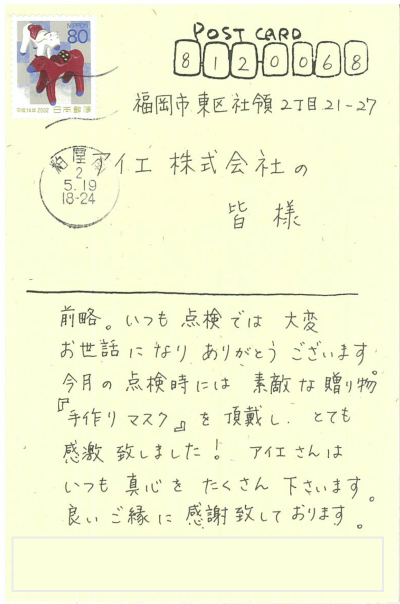 POST CARD
NIPPON 80
平成14年 2002 日本郵便
8120068
福岡市東区社領2丁目21-27
粕屋
2
5.19
18-24
アイエ 株式会社の
皆 様
前略。いつも 点検では 大変
お世話になり ありがとう ございます。
今月の 点検時には 素敵な贈り物
『手作りマスク』を 頂戴し、とても
感激 致しました! アイエさんは
いつも 真心を たくさん 下さいます。
良い ご縁に 感謝致しております。